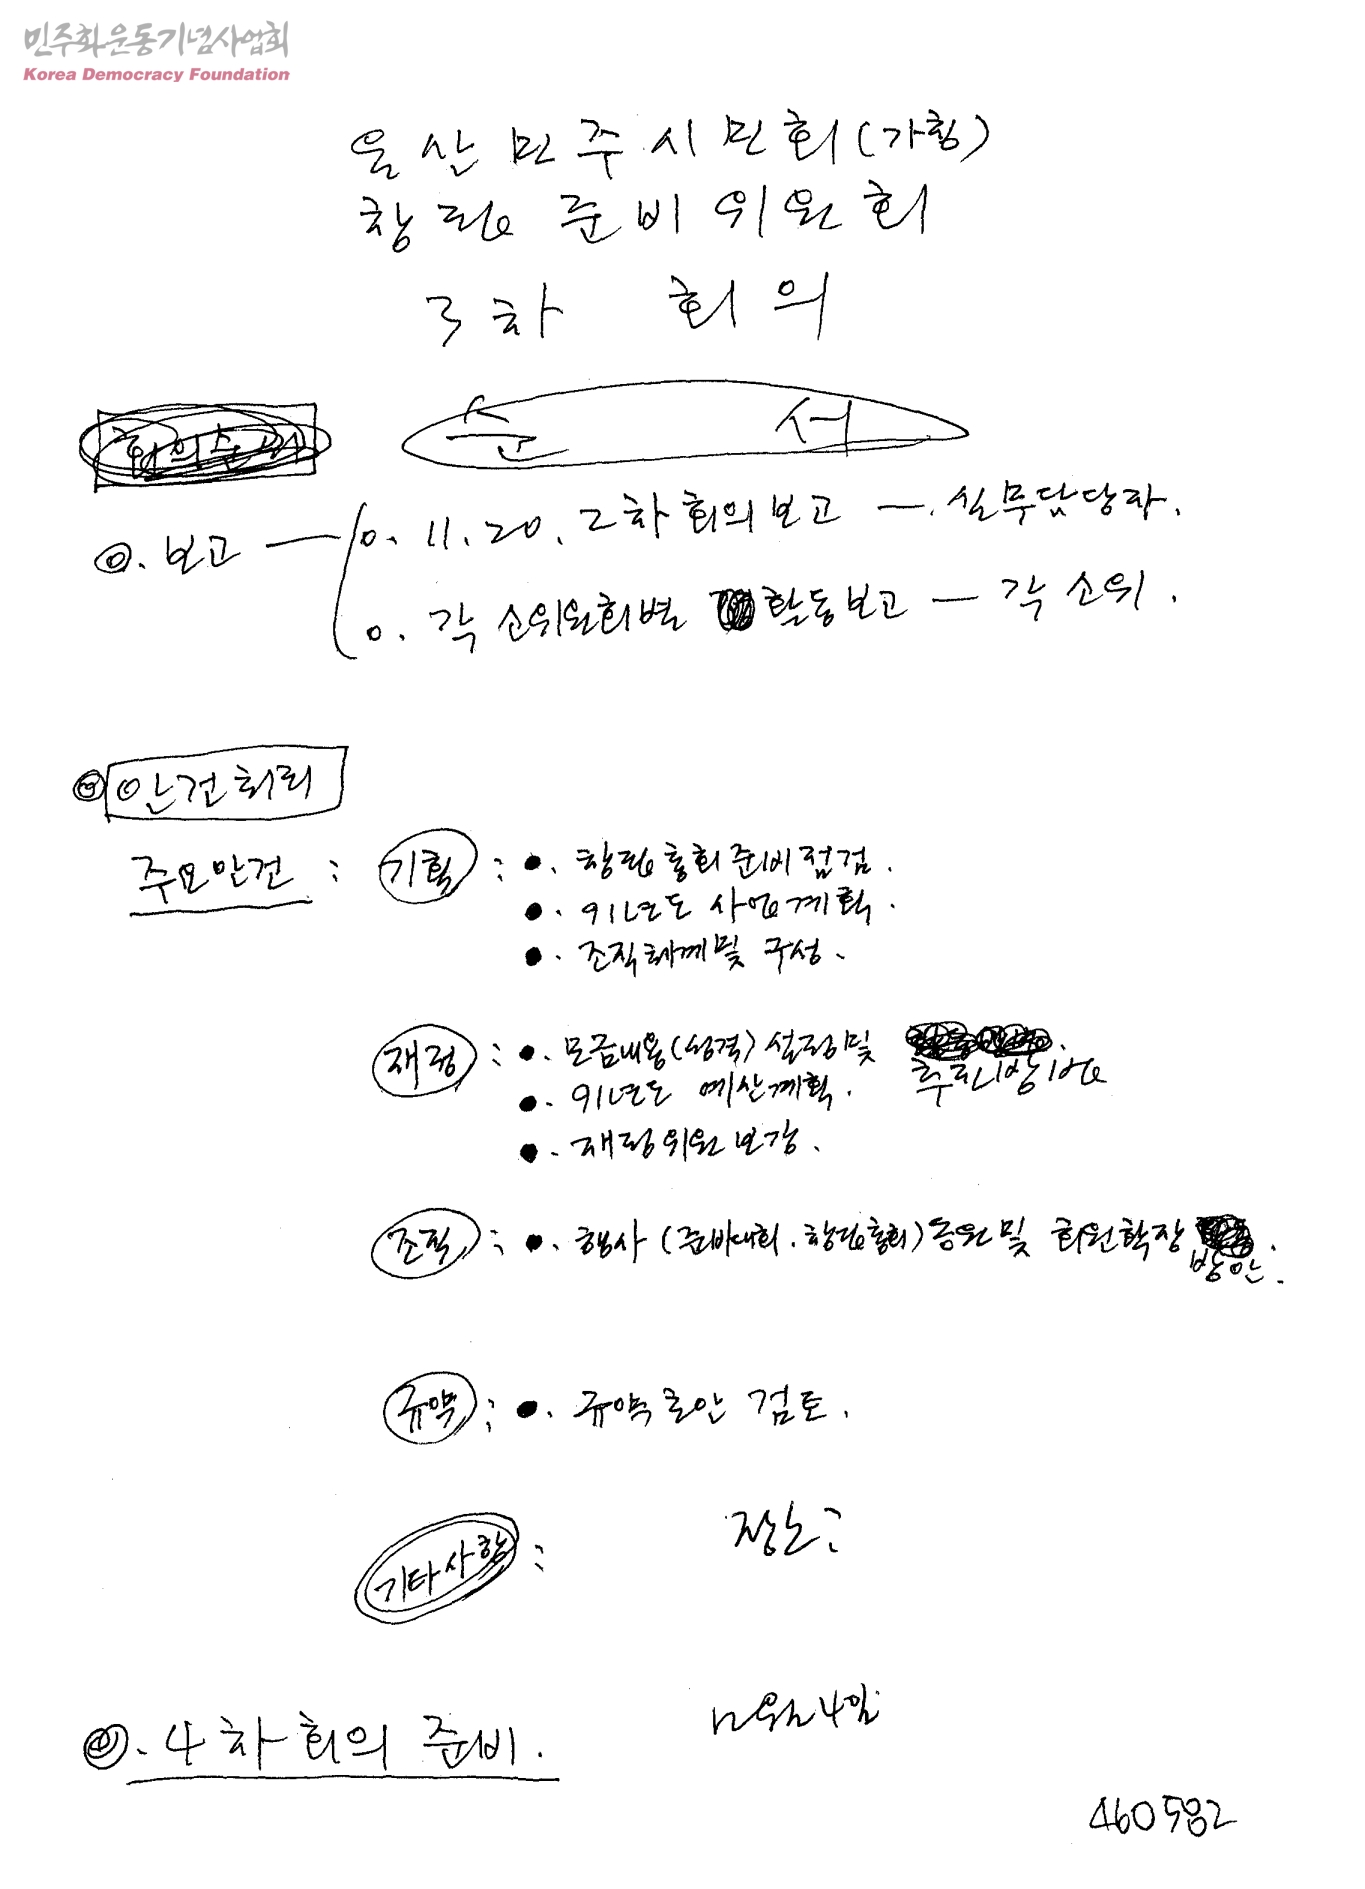 민주화운동기념사업회
Korea Democracy Foundation
울산민주시민회(가칭)
창립 준비위원회
3차 회의
회의순서
순 서
◎. 보고 — o. 11. 20. 2차 회의보고 — 실무담당자.
o. 각 소위원회별 활동보고 — 각 소위.
◎ 안건처리
주요안건 : 기획 : ●. 창립총회준비점검.
●. 91년도 사업계획.
●. 조직체계및 구성.
재정 : ●. 모금내용(성격) 설정및
추진방법
●. 91년도 예산계획.
●. 재정위원 보강.
조직 : ●. 행사 (준비대회. 창립총회) 동원및 회원확장
방안.
규약 : ●. 규약초안 검토.
기타사항 :
장소:
12월4일
◎. 4차회의 준비.
460582